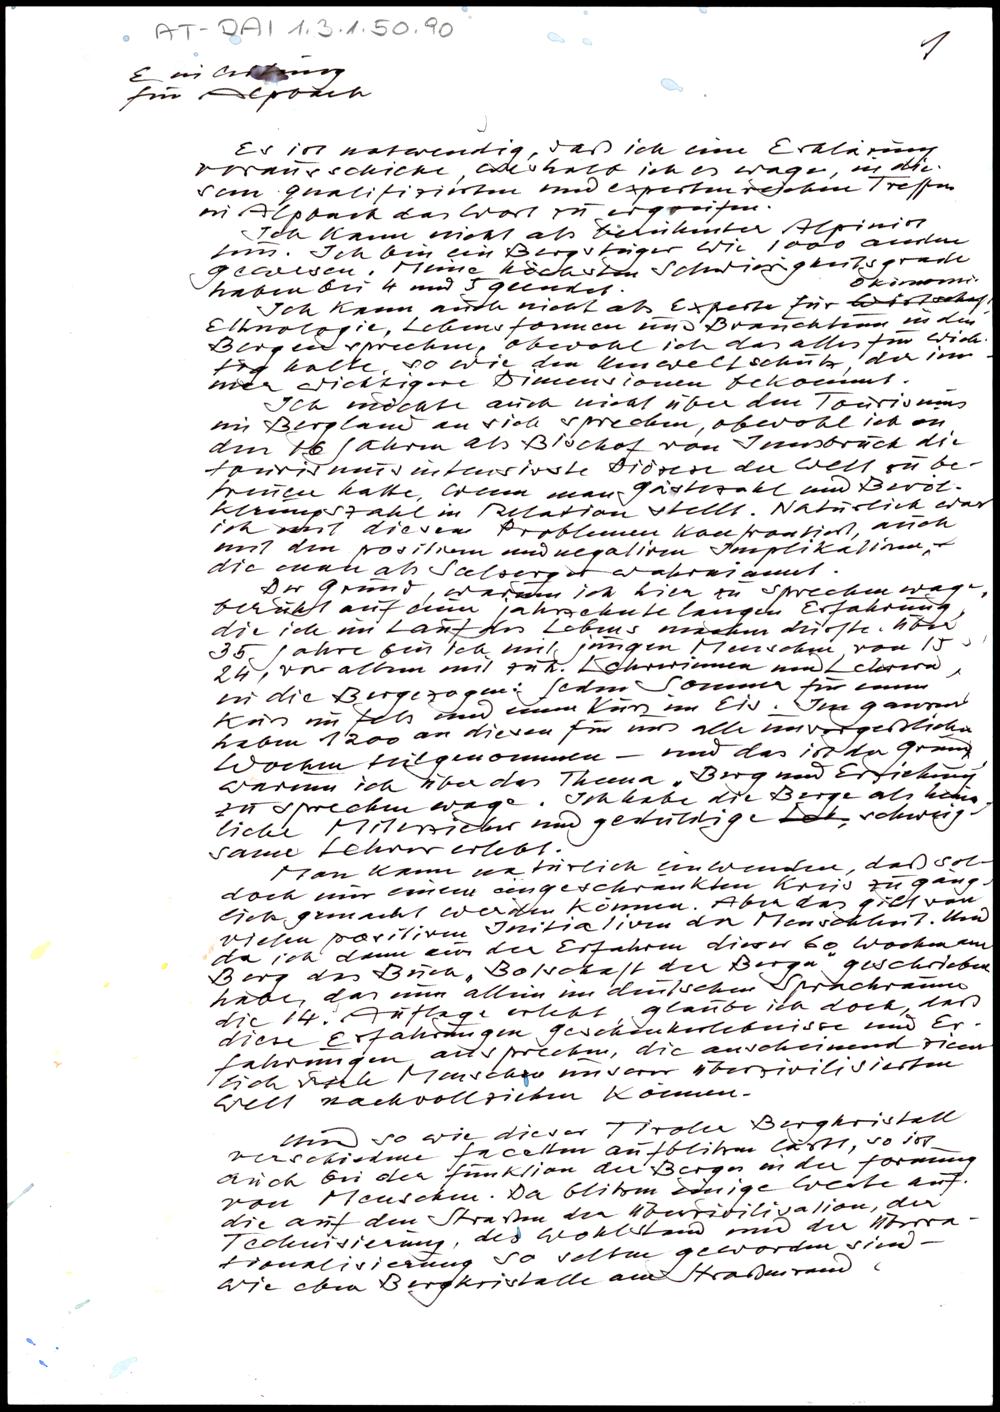 AT-DAI 1.3.1.50.90
1
Einleitung
für Alpbach
Es ist notwendig, daß ich eine Erklärung
vorausschicke, weshalb ich es wage, in die-
sem qualifizierten und expertenreichen Treffen
in Alpbach das Wort zu ergreifen.
Ich kann nicht als berühmter Alpinist
tun. Ich bin ein Bergsteiger wie 1000 andere
gewesen. Meine höchsten Schwierigkeitsgrade
haben bei 4 und 5 geendet.
Ökonomi
Ich kann auch nicht als Experte für Wirtschaft,
Ethnologie, Lebensformen und Brauchtum in den
Bergen sprechen, obwohl ich das alles für wich-
tig halte, so wie den Umweltschutz, der im-
mer wichtigere Dimensionen bekommt.
Ich möchte auch nicht über den Tourismus
im Bergland an sich sprechen, obwohl ich in
den 16 Jahren als Bischof von Innsbruck die
tourismusintensivste Diözese der Welt zu be-
treuen hatte, wenn man Gästezahl und Bevöl-
kerungszahl in Relation stellt. Natürlich war
ich mit diesen Problemen konfrontiert, auch
mit den positiven und negativen Implikationen,
die man als Seelsorger wahrnimmt.
Der Grund, warum ich hier zu sprechen wage,
beruht auf einer jahrzehntelangen Erfahrung,
die ich im Lauf des Lebens machen durfte. Über
35 Jahre bin ich mit jungen Menschen von 15
24, vor allem mit zuk. Lehrerinnen und Lehrern,
in die Berge gezogen: Jeden Sommer für einen
Kurs im Fels und einen Kurs im Eis. Im ganzen
haben 1200 an diesen für uns alle unvergeßlichen
Wochen teilgenommen – und das ist der Grund
warum ich über das Thema „Berg und Erziehung“
zu sprechen wage. Ich habe die Berge als heim-
liche Miterzieher und geduldige, schweig-
same Lehrer erlebt.
Man kann natürlich einwenden, daß sol-
doch nur einem eingeschränkten Kreis zugäng-
lich gemacht werden können. Aber das gilt von
vielen positiven Initiativen der Menschheit. Und
da ich dann aus der Erfahrung dieser 60 Wochen am
Berg das Buch „Botschaft der Berge“ geschrieben
habe, das nun allein im deutschen Sprachraum
die 14. Auflage erlebt, glaube ich doch, daß
diese Erfahrungen Geschenkerlebnisse und Er-
fahrungen ansprechen, die anscheinend ziem-
lich viele Menschen unserer überzivilisierten
Welt nachvollziehen können.
Und so wie dieser Tiroler Bergkristall
verschiedene Facetten aufblitzen läßt, so ist
auch bei der Funktion der Berge in der Formung
von Menschen. Da blitzen einige Werte auf,
die auf den Straßen der Überzivilisation, der
Technisierung, des Wohlstand und der Überra-
tionalisierung so selten geworden sind –
wie eben Bergkristalle am Straßenrand.